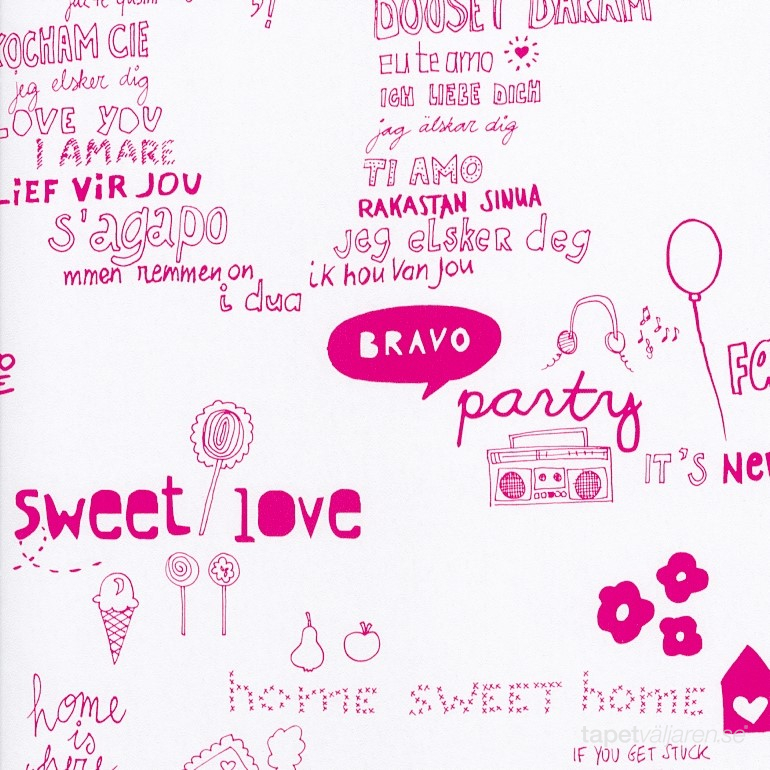 KOCHAM CIE
jeg elsker dig
LOVE YOU
I AMARE
LiEF ViR JOU
s'agapo
mmen remmen on
i dua
DOOSET DARAM
eu te amo
ICH LIEBE DICH
jag älskar dig
TI AMO
RAKASTAN SINUA
jeg elsker deg
ik hou van jou
BRAVO
party
IT'S
sweet love
home SWEET home
home
is
where
IF YOU GET STUCK
tapetväljaren.se